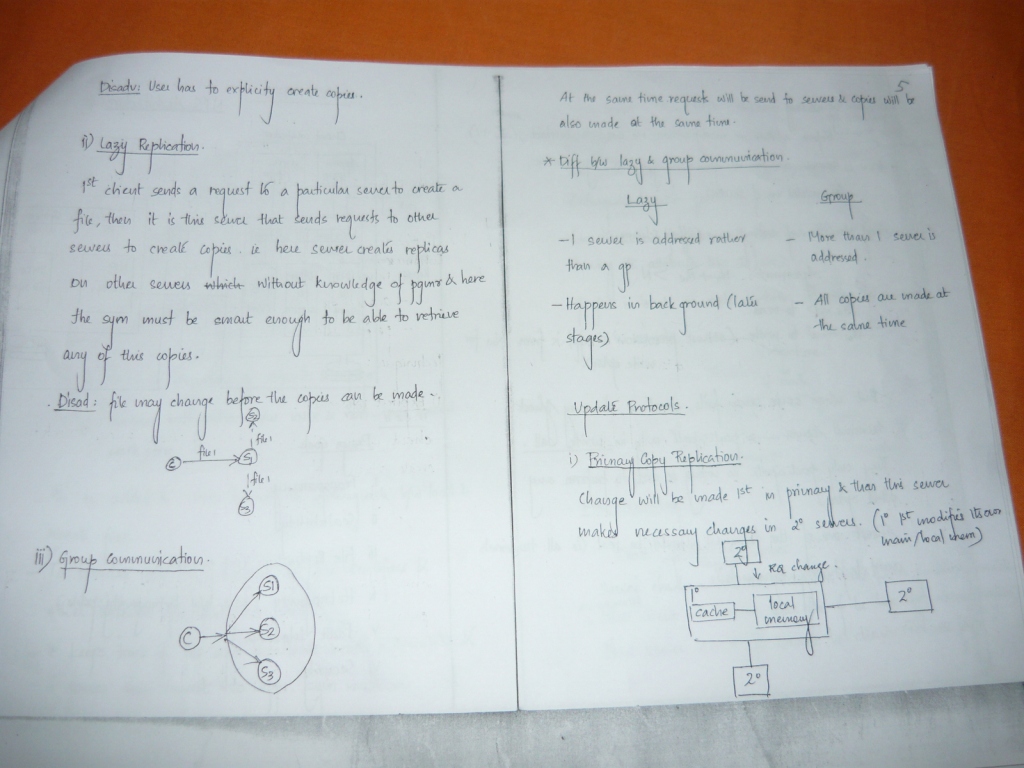 Disadv: User has to explicity create copies.
ii) Lazy Replication.
1st client sends a request to a particular server to create a
file, then it is this server that sends requests to other
servers to create copies. ie here server creates replicas
on other servers which without knowledge of pgmr & here
the sym must be smart enough to be able to retrieve
any of this copies.
Disad: file may change before the copies can be made.
S2
file1
C file1 S1
file1
S3
iii) Group communication.
S1
C S2
S3
5
At the same time requests will be send to servers & copies will be
also made at the same time.
* Diff b/w lazy & group communication.
Lazy Group
- 1 server is addressed rather - More than 1 server is
than a gp addressed.
- Happens in background (later - All copies are made at
stages) the same time
Update Protocols.
i) Primary Copy Replication.
Change will be made 1st in primary & then this server
makes necessary changes in 2° servers. (1° 1st modifies its own
main/local mem)
2°
RQ change.
1°
cache local memory 2°
2°